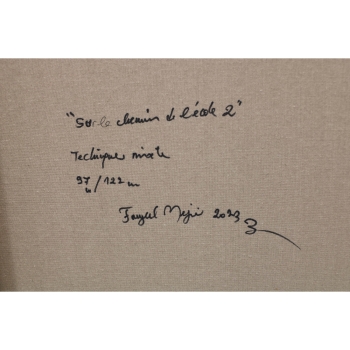 "Sur le chemin de l'école 2"
Technique mixte
97/122 cm
2023